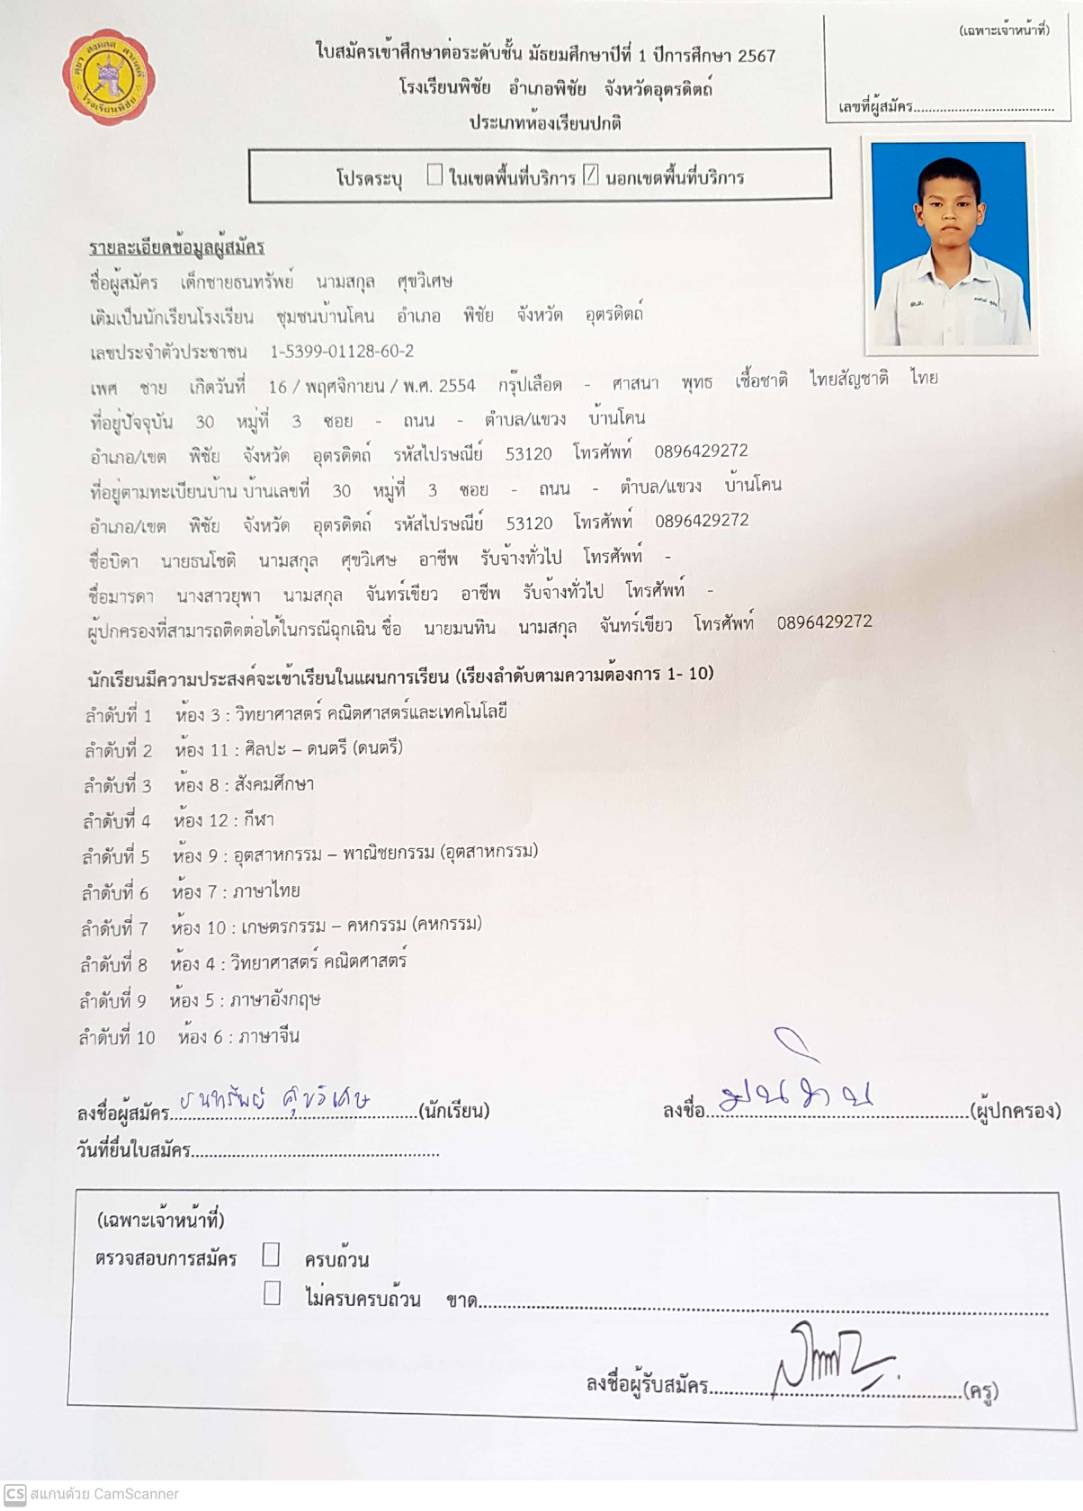 (เฉพาะเจ้าหน้าที่)
ใบสมัครเข้าศึกษาต่อระดับชั้น มัธยมศึกษาปีที่ 1 ปีการศึกษา 2567
โรงเรียนพิชัย อำเภอพิชัย จังหวัดอุตรดิตถ์
เลขที่ผู้สมัคร....................................
ประเภทห้องเรียนปกติ
โปรดระบุ ☐ ในเขตพื้นที่บริการ ☑ นอกเขตพื้นที่บริการ
รายละเอียดข้อมูลผู้สมัคร
ชื่อผู้สมัคร เด็กชายธนทรัพย์ นามสกุล ศุขวิเศษ
เดิมเป็นนักเรียนโรงเรียน ชุมชนบ้านโคน อำเภอ พิชัย จังหวัด อุตรดิตถ์
เลขประจำตัวประชาชน 1-5399-01128-60-2
เพศ ชาย เกิดวันที่ 16 / พฤศจิกายน / พ.ศ. 2554 กรุ๊ปเลือด - ศาสนา พุทธ เชื้อชาติ ไทยสัญชาติ ไทย
ที่อยู่ปัจจุบัน 30 หมู่ที่ 3 ซอย - ถนน - ตำบล/แขวง บ้านโคน
อำเภอ/เขต พิชัย จังหวัด อุตรดิตถ์ รหัสไปรษณีย์ 53120 โทรศัพท์ 0896429272
ที่อยู่ตามทะเบียนบ้าน บ้านเลขที่ 30 หมู่ที่ 3 ซอย - ถนน - ตำบล/แขวง บ้านโคน
อำเภอ/เขต พิชัย จังหวัด อุตรดิตถ์ รหัสไปรษณีย์ 53120 โทรศัพท์ 0896429272
ชื่อบิดา นายธนโชติ นามสกุล ศุขวิเศษ อาชีพ รับจ้างทั่วไป โทรศัพท์ -
ชื่อมารดา นางสาวยุพา นามสกุล จันทร์เขียว อาชีพ รับจ้างทั่วไป โทรศัพท์ -
ผู้ปกครองที่สามารถติดต่อได้ในกรณีฉุกเฉิน ชื่อ นายมนทิน นามสกุล จันทร์เขียว โทรศัพท์ 0896429272
นักเรียนมีความประสงค์จะเข้าเรียนในแผนการเรียน (เรียงลำดับตามความต้องการ 1- 10)
ลำดับที่ 1 ห้อง 3 : วิทยาศาสตร์ คณิตศาสตร์และเทคโนโลยี
ลำดับที่ 2 ห้อง 11 : ศิลปะ – ดนตรี (ดนตรี)
ลำดับที่ 3 ห้อง 8 : สังคมศึกษา
ลำดับที่ 4 ห้อง 12 : กีฬา
ลำดับที่ 5 ห้อง 9 : อุตสาหกรรม – พาณิชยกรรม (อุตสาหกรรม)
ลำดับที่ 6 ห้อง 7 : ภาษาไทย
ลำดับที่ 7 ห้อง 10 : เกษตรกรรม – คหกรรม (คหกรรม)
ลำดับที่ 8 ห้อง 4 : วิทยาศาสตร์ คณิตศาสตร์
ลำดับที่ 9 ห้อง 5 : ภาษาอังกฤษ
ลำดับที่ 10 ห้อง 6 : ภาษาจีน
ลงชื่อผู้สมัคร ธนทรัพย์ ศุขวิเศษ (นักเรียน) ลงชื่อ มนทิน (ผู้ปกครอง)
วันที่ยื่นใบสมัคร....................................
(เฉพาะเจ้าหน้าที่)
ตรวจสอบการสมัคร ☐ ครบถ้วน
☐ ไม่ครบครบถ้วน ขาด....................................
ลงชื่อผู้รับสมัคร....................................(ครู)
CS สแกนด้วย CamScanner